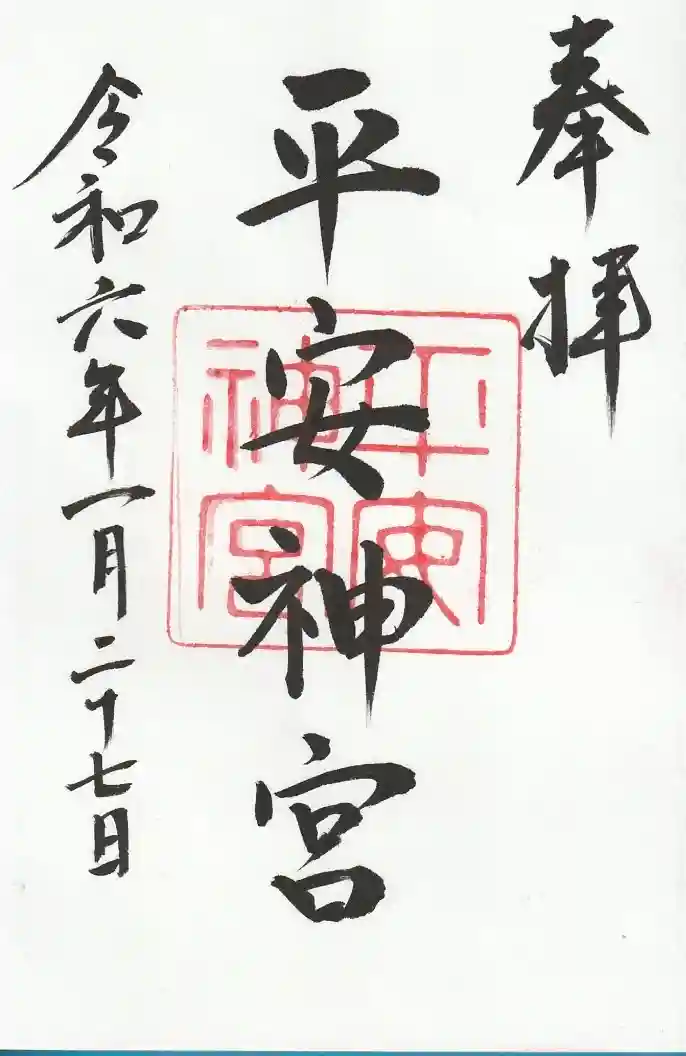 奉拝
平安神宮
平安
神宮
令和六年一月二十七日